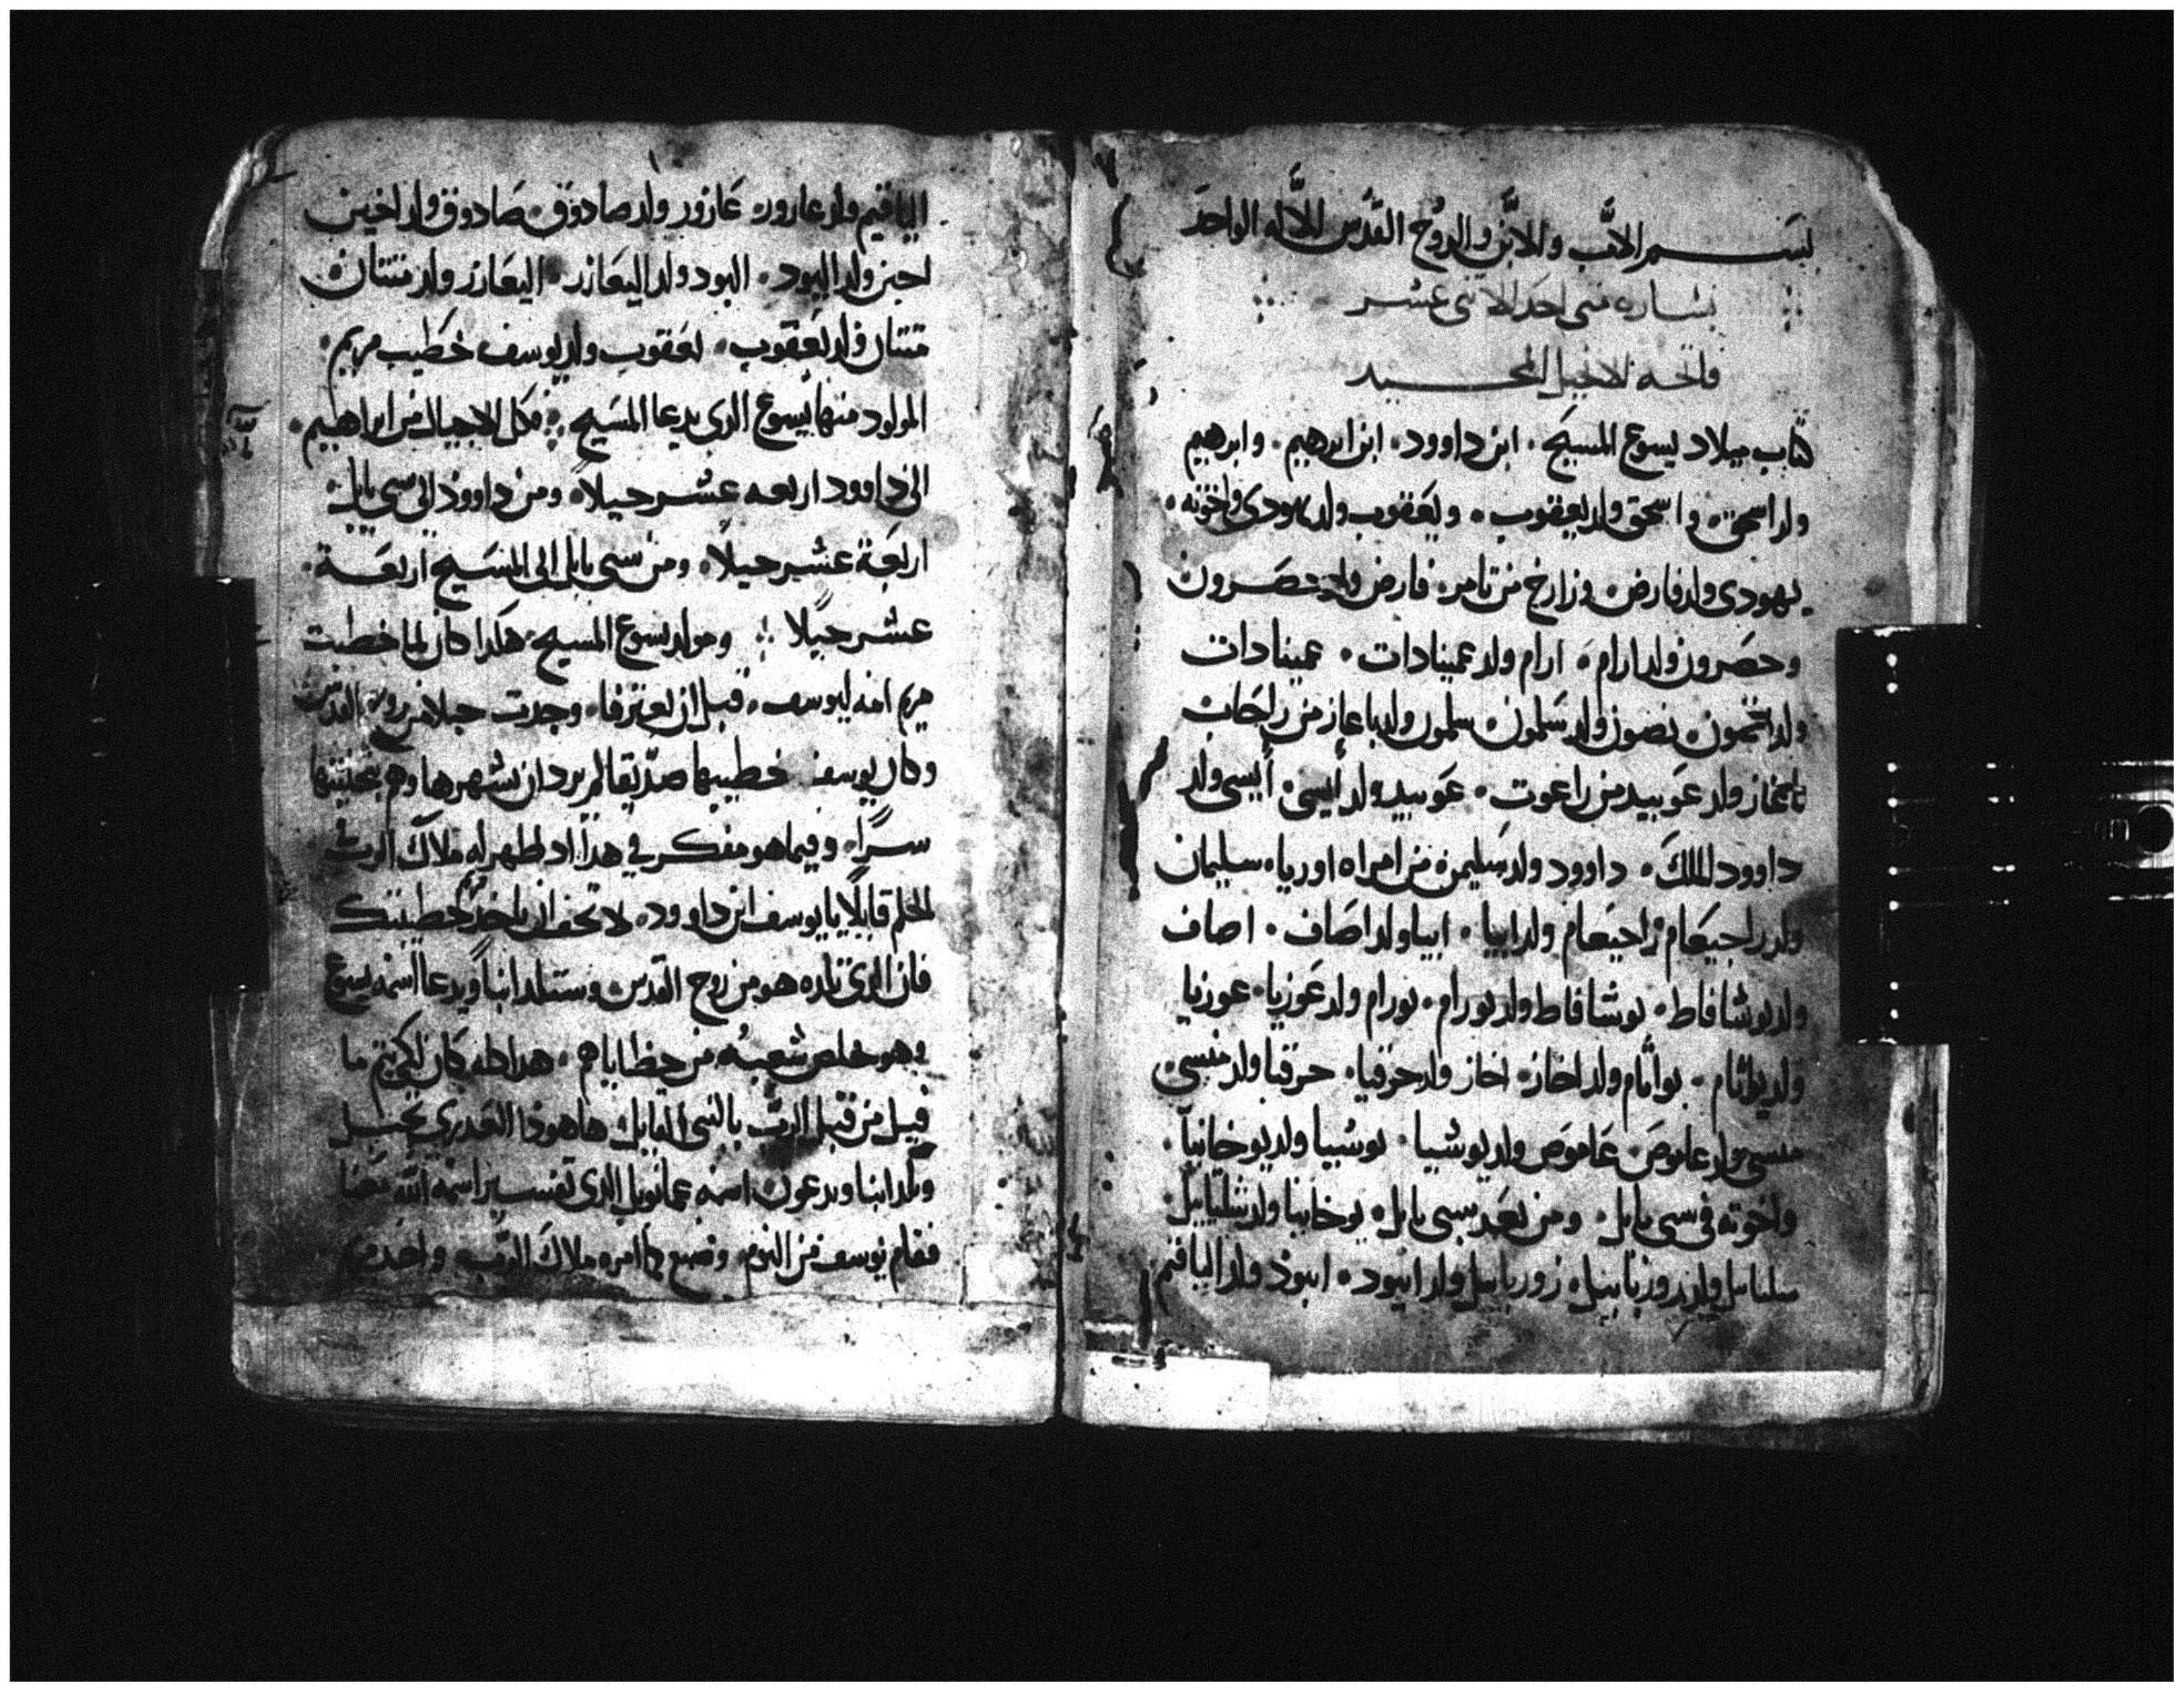 بسم الاب والابن والروح القدس الاله الواحد
بشاره متى احد الاثنى عشر
فاتحه الانجيل المجيد
كتاب ميلاد يسوع المسيح ٠ ابن داوود ٠ ابن ابرهيم ٠ وابرهيم
ولد اسحق ٠ واسحق ولد يعقوب ٠ ويعقوب ولد يهودى واخوته ٠
يهودى ولد فارض وزارخ من تامر ٠ فارض ولد حصرون
وحصرون ولد ارام ٠ ارام ولد عمينادات ٠ عمينادات
ولد نصون ولد سلمون ٠ سلمون ولد باعاز من راحاب
ولد عوبيد من راعوت ٠ عوبيد ولد أيسى ٠ أيسى ولد
داوود الملك ٠ داوود ولد سليمن من امراه اوريا ٠ سليمان
ولد راحيعام زاحيعام ولد ابيا ٠ ابيا ولد اصاف ٠ اصاف
ولد يوشافاط ٠ يوشافاط ولد يورام ٠ يورام ولد عوزيا ٠ عوزيا
ولد يواثام ٠ يواثام ولد اخاز ٠ اخاز ولد حزقيا ٠ حزقيا ولد منسى
منسى ولد عاموص ٠ عاموص ولد يوشيا ٠ يوشيا ولد يوخانيا ٠
واخوته فى سبى بابل ٠ ومن بعد سبى بابل ٠ يوخانيا ولد شلتاييل
ولد زوربابيل ٠ زوربابيل ولد ابيود ٠ ابيود ولد الياقيم
الياقيم ولد عازور ٠ عازور ولد صادوق ٠ صادوق ولد اخين
اخين ولد اليود ٠ اليود ولد اليعازر ٠ اليعازر ولد متتان
متتان ولد يعقوب ٠ يعقوب ولد يوسف خطيب مريم ٠
المولود منها يسوع الذى يدعا المسيح ٠ فكل الاجيال من ابراهيم ٠
الى داوود اربعه عشر جيلاً ٠ ومن داوود الى سبى بابل
اربعة عشر جيلاً ٠ ومن سبى بابل الى المسيح اربعة
عشر جيلا ٠ ومولد يسوع المسيح هكدا كان لما خطبت
مريم امه ليوسف ٠ قبل ان يعترفا ٠ وجدت حبلا من روح القدس
وكان يوسف خطيبها صدّيقا لم يرد ان يشهرها وهم بتخليتها
سرًا ٠ وفيما هو مفكر في هدا اد ظهر له ملاك الرب
الحلم قايلًا يا يوسف ابن داوود ٠ لا تخف ان تاخد خطيبتك
فان الذى تلده هو من روح القدس ٠ وستلد ابناً ويدعا اسمه يسوع
وهو يخلص شعبه من خطاياهم ٠ هدا كله كان لكي يتم ما
قيل من قبل الرب بالنبى القايل ها هوذا العدرى تحبل
وتلد ابنا ويدعون اسمه عمانويل الذى تفسير اسمه الله معنا
فقام يوسف من النوم وصنع كما امره ملاك الرب ٠ واخد مريم